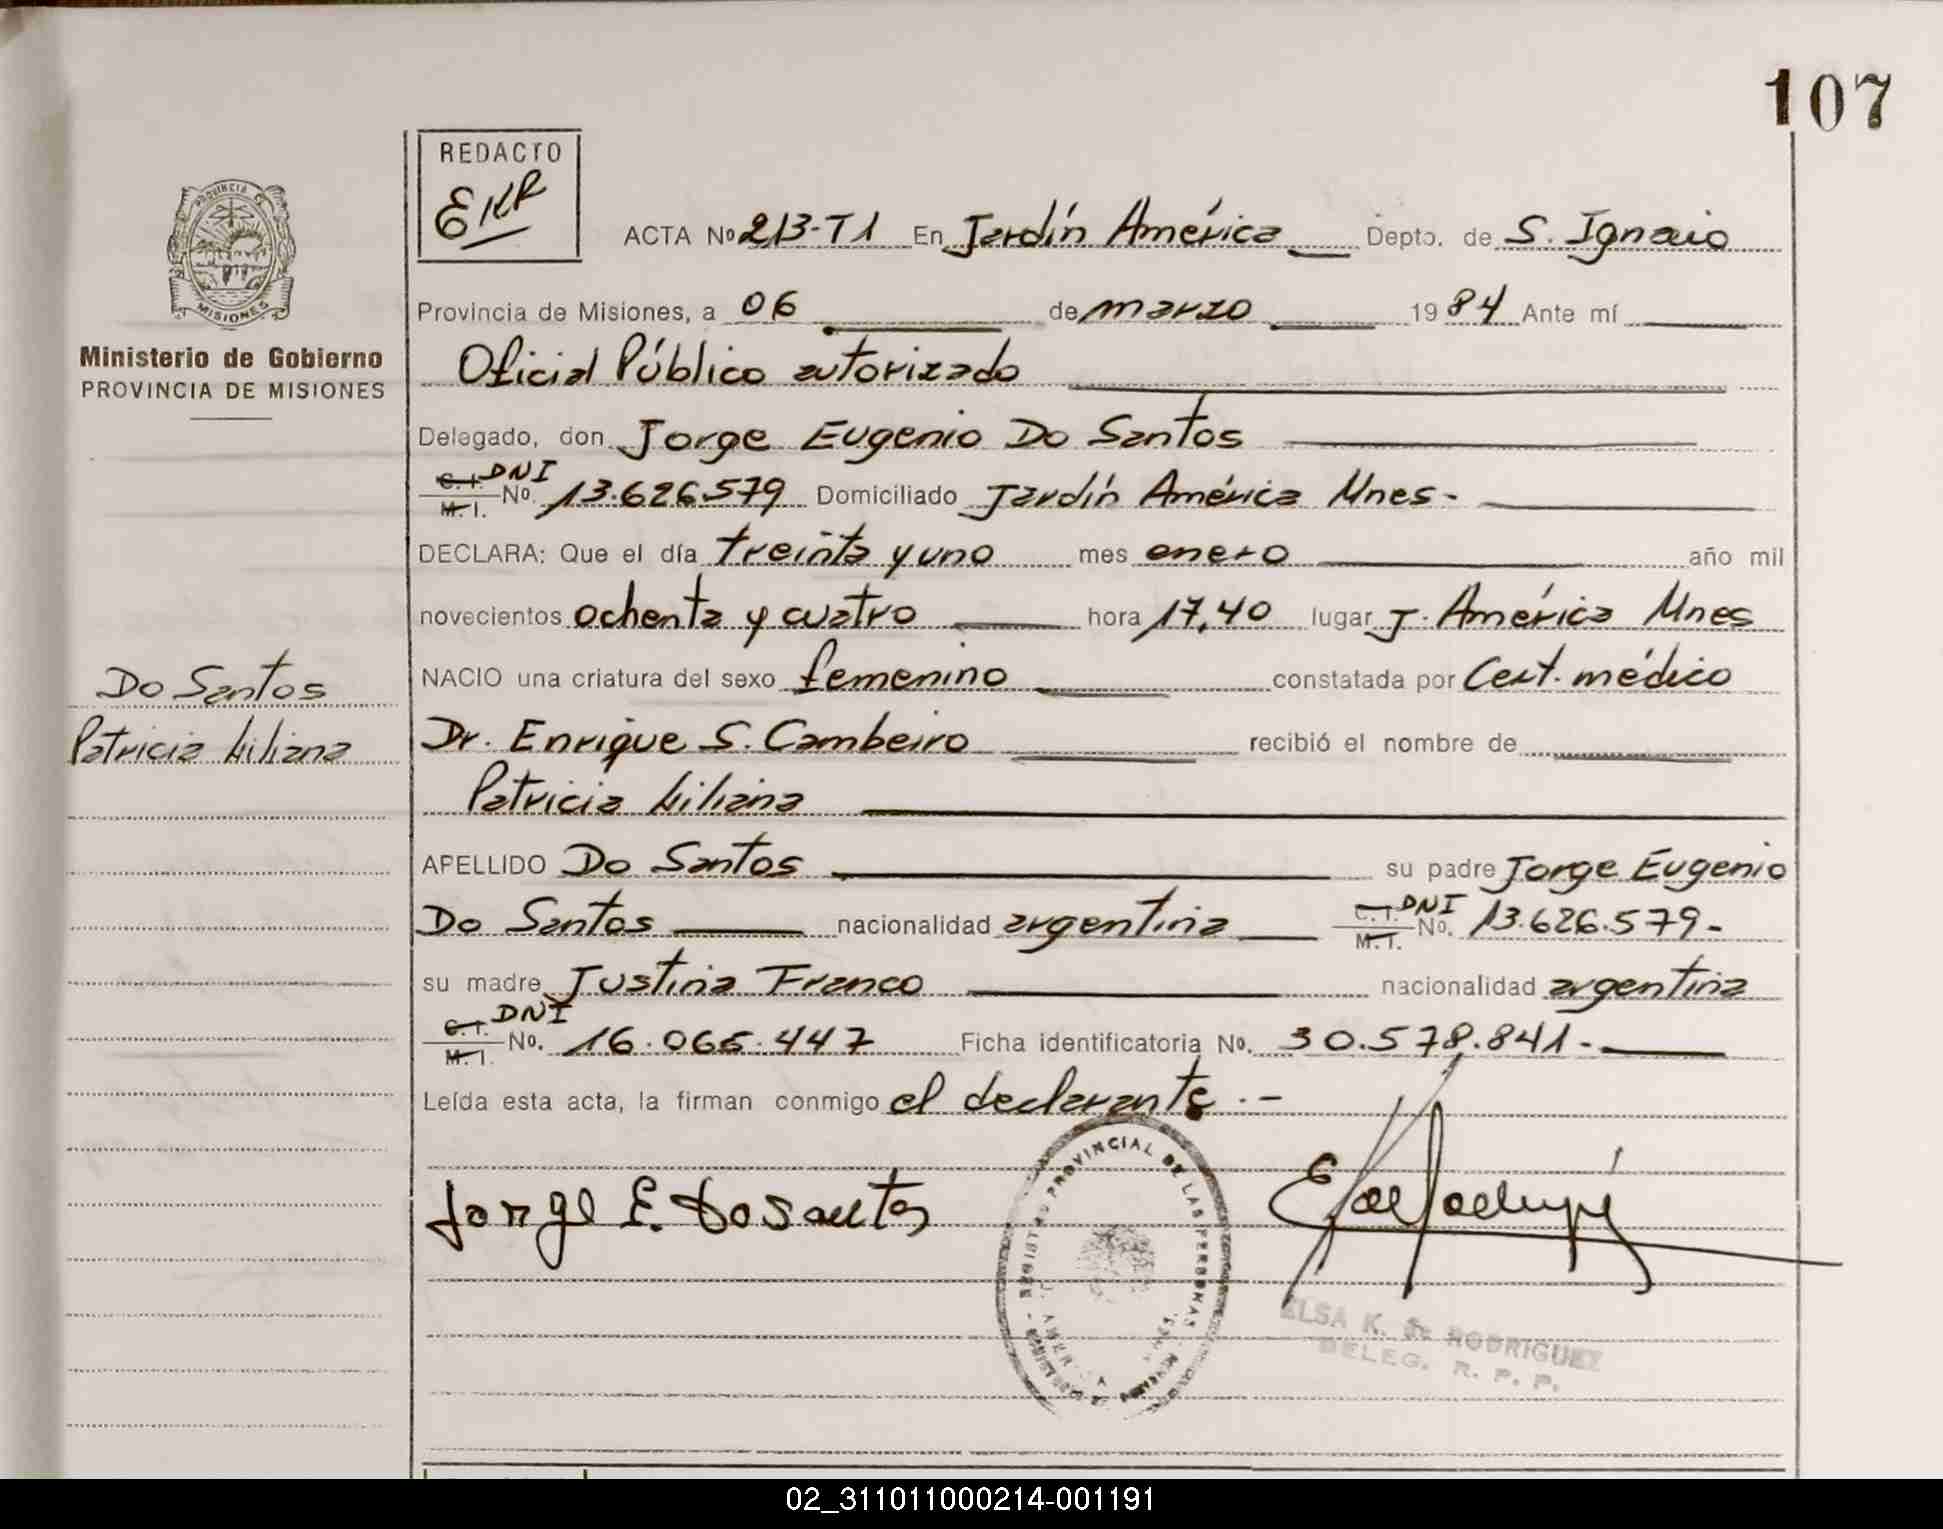 107
REDACTO
EKR
PROVINCIA DE
MISIONES
Ministerio de Gobierno
PROVINCIA DE MISIONES
ACTA Nº 213-T1 En Jardín América Depto. de S. Ignacio
Provincia de Misiones, a 06 de marzo 1984 Ante mí
Oficial Público autorizado
Delegado, don Jorge Eugenio Do Santos
C.I. M.I. DNI No. 13.626.579 Domiciliado Jardín América Mnes-
DECLARA: Que el día treinta y uno mes enero año mil
novecientos ochenta y cuatro hora 17,40 lugar J. América Mnes
NACIO una criatura del sexo femenino constatada por Cert. médico
Dr. Enrique S. Cambeiro recibió el nombre de
Patricia Liliana
APELLIDO Do Santos su padre Jorge Eugenio
Do Santos nacionalidad argentina C.I. M.I. DNI No. 13.626.579-
su madre Justina Franco nacionalidad argentina
C.I. M.I. DNI No. 16.065.447 Ficha identificatoria No. 30.578.841.-
Leída esta acta, la firman conmigo el declarante.-
Do Santos
Patricia Liliana
Jorge E. Dosantos
REGISTRO PROVINCIAL DE LAS PERSONAS
ELSA K. de RODRIGUEZ
DELEG. R. P. P.
02_311011000214-001191